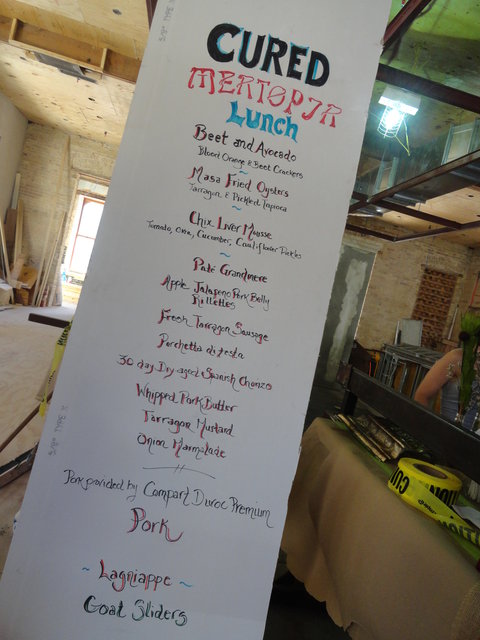 CURED
MEATOPIA
Lunch
Beet and Avocado
Blood Orange & Beet Crackers
~
Masa Fried Oysters
Tarragon & Pickled Tapioca
~
Chix Liver Mousse
Tomado, okra, Cucumber, Cauliflower Pickles
~
Paté Grandmere
Apple Jalapeno Pork Belly
Rillettes
Fresh Tarragon Sausage
Porchetta di testa
30 day Dry aged Spanish Chorizo
Whipped Pork Butter
Tarragon Mustard
Onion Marmalade
Pork provided by Compart Duroc Premium
Pork
~ Lagniappe ~
Goat Sliders
5/8" TYPE X
CAUTION